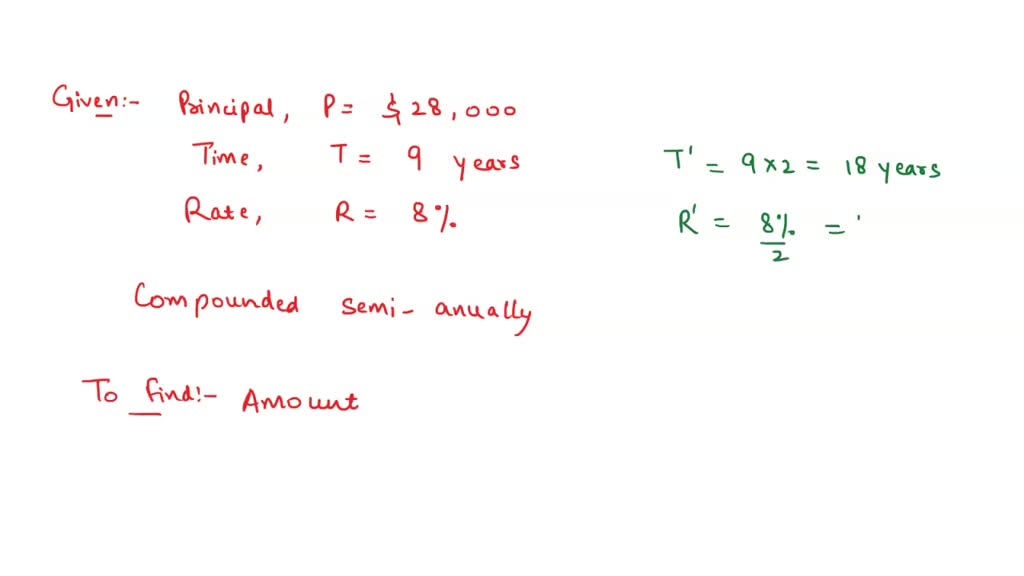 Given:- Principal, P = $ 28,000
Time, T = 9 years
Rate, R = 8%.
Compounded semi- anually
To find:- Amount
T' = 9 x 2 = 18 years
R' = 8%. =
2